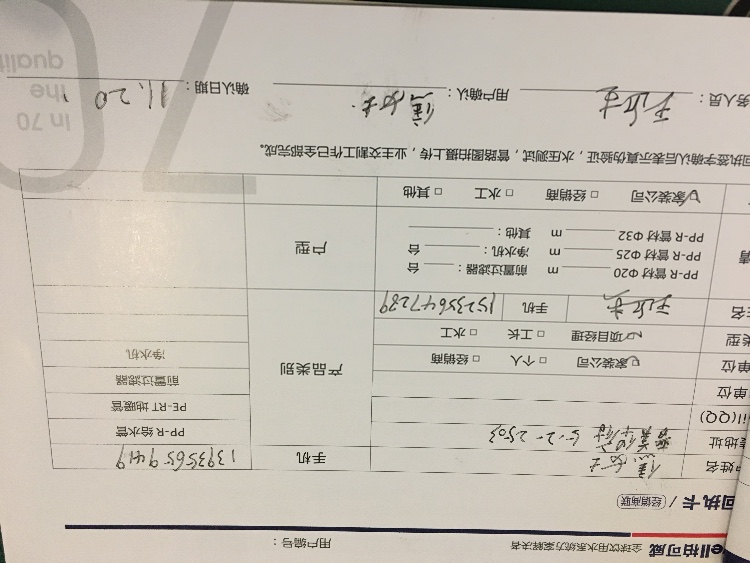 全球饮用水系统方案解决者 用户编号：
回执卡 / 经销商联
户姓名 焦女士 手机 13935659419
地址 5-2-2503
il(QQ)
单位
单位 家装公司 个人 经销商
类型 项目经理 工长 水工
姓名 手机 15235647289
产品类别
PP-R 给水管
PE-RT 地暖管
前置过滤器
净水机
PP-R 管材 Φ20 m 前置过滤器： 台
PP-R 管材 Φ25 m 净水机： 台
PP-R 管材 Φ32 m 其他：
户型
家装公司 经销商 水工 其他
回执签字确认后表示真伪验证，水压测试，管路图拍摄上传，业主交割工作已全部完成。
务人员： 用户确认： 焦女士 确认日期： 11.20
70
In 70
the
qualit